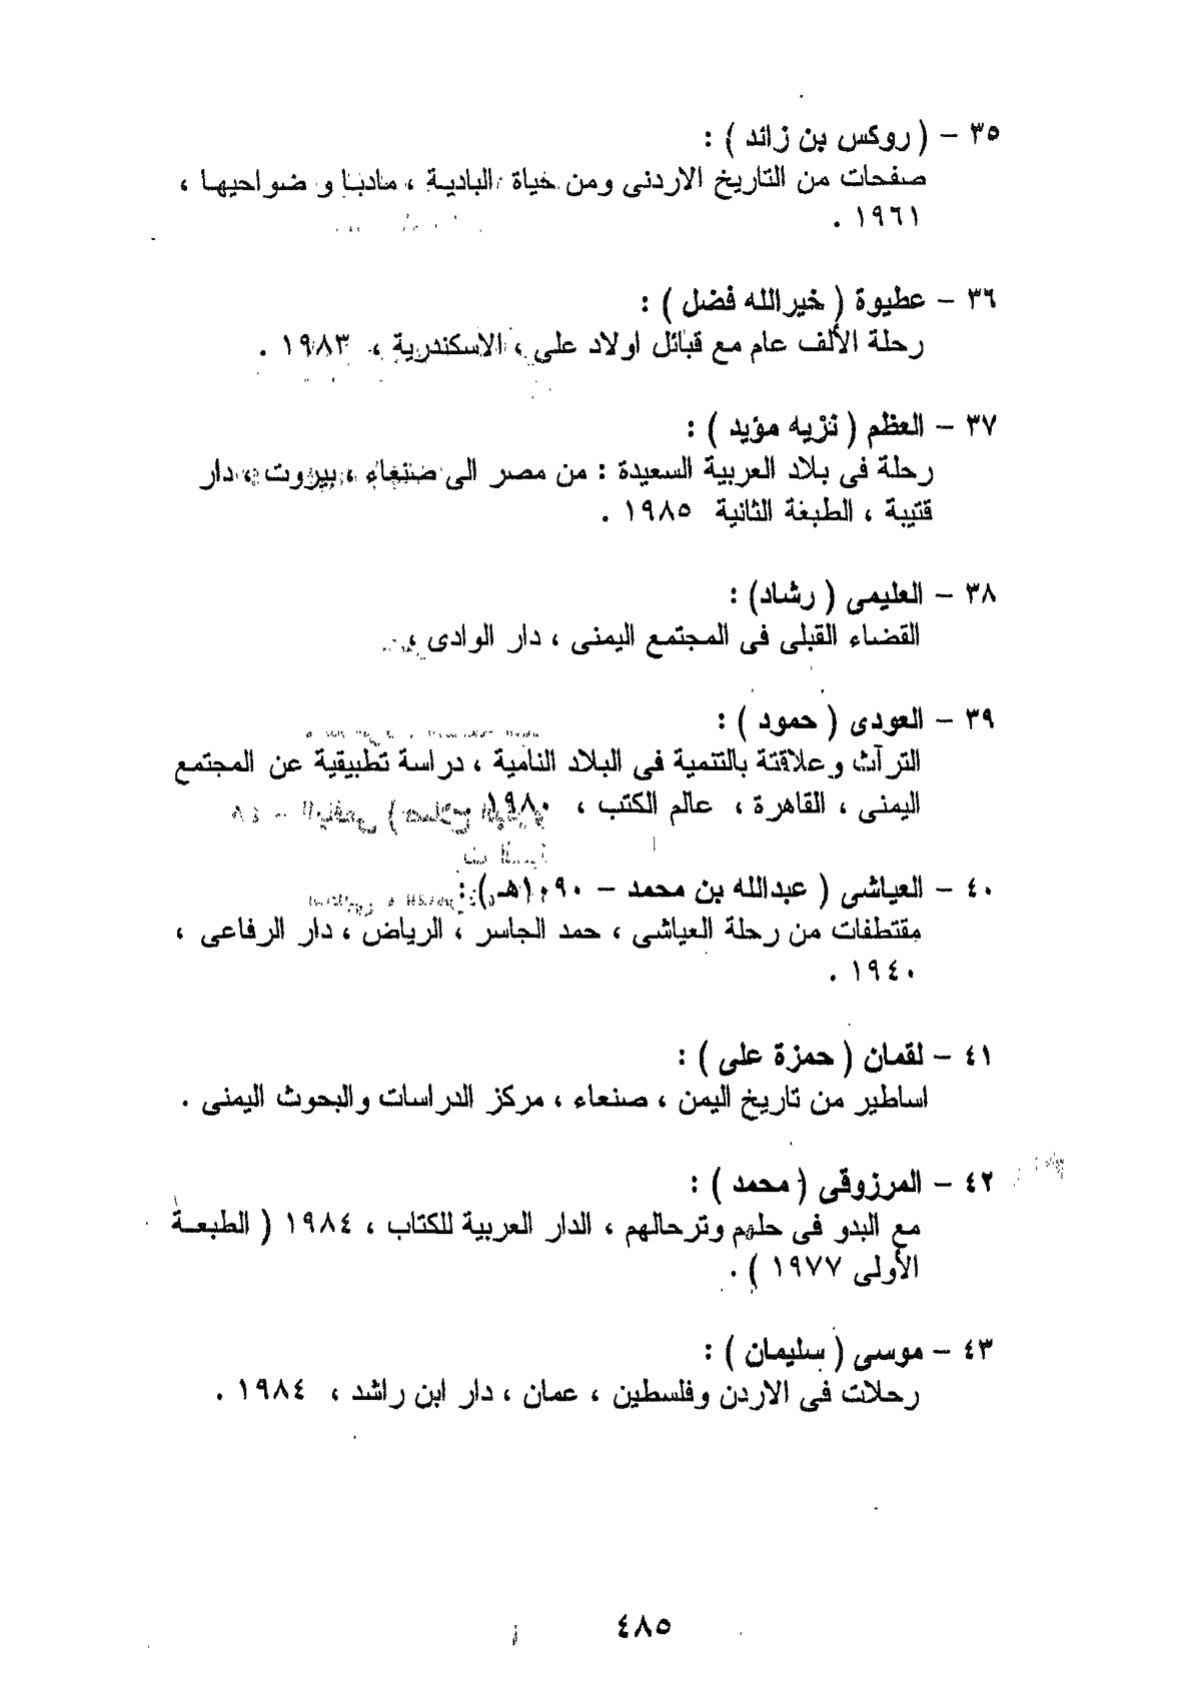 ٣٥ – ( روكس بن زائد ) :
صفحات من التاريخ الاردنى ومن حياة البادية ، مادبا و ضواحيها ،
١٩٦١ .
٣٦ – عطيوة ( خيرالله فضل ) :
رحلة الألف عام مع قبائل اولاد على ، الاسكندرية ، ١٩٨٣ .
٣٧ – العظم ( نزيه مؤيد ) :
رحلة فى بلاد العربية السعيدة : من مصر الى صنعاء ، بيروت ، دار
قتيبة ، الطبعة الثانية ١٩٨٥ .
٣٨ – العليمى ( رشاد) :
القضاء القبلى فى المجتمع اليمنى ، دار الوادى ،
٣٩ – العودى ( حمود ) :
التراث وعلاقتة بالتنمية فى البلاد النامية ، دراسة تطبيقية عن المجتمع
اليمنى ، القاهرة ، عالم الكتب ، ١٩٨٠
٤٠ – العياشى ( عبدالله بن محمد – ١٠٩٠هـ ) :
مقتطفات من رحلة العياشى ، حمد الجاسر ، الرياض ، دار الرفاعى ،
١٩٤٠ .
٤١ – لقمان ( حمزة على ) :
اساطير من تاريخ اليمن ، صنعاء ، مركز الدراسات والبحوث اليمنى .
٤٢ – المرزوقى ( محمد ) :
مع البدو فى حلهم وترحالهم ، الدار العربية للكتاب ، ١٩٨٤ ( الطبعة
الأولى ١٩٧٧ ) .
٤٣ – موسى ( سليمان ) :
رحلات فى الاردن وفلسطين ، عمان ، دار ابن راشد ، ١٩٨٤ .
٤٨٥